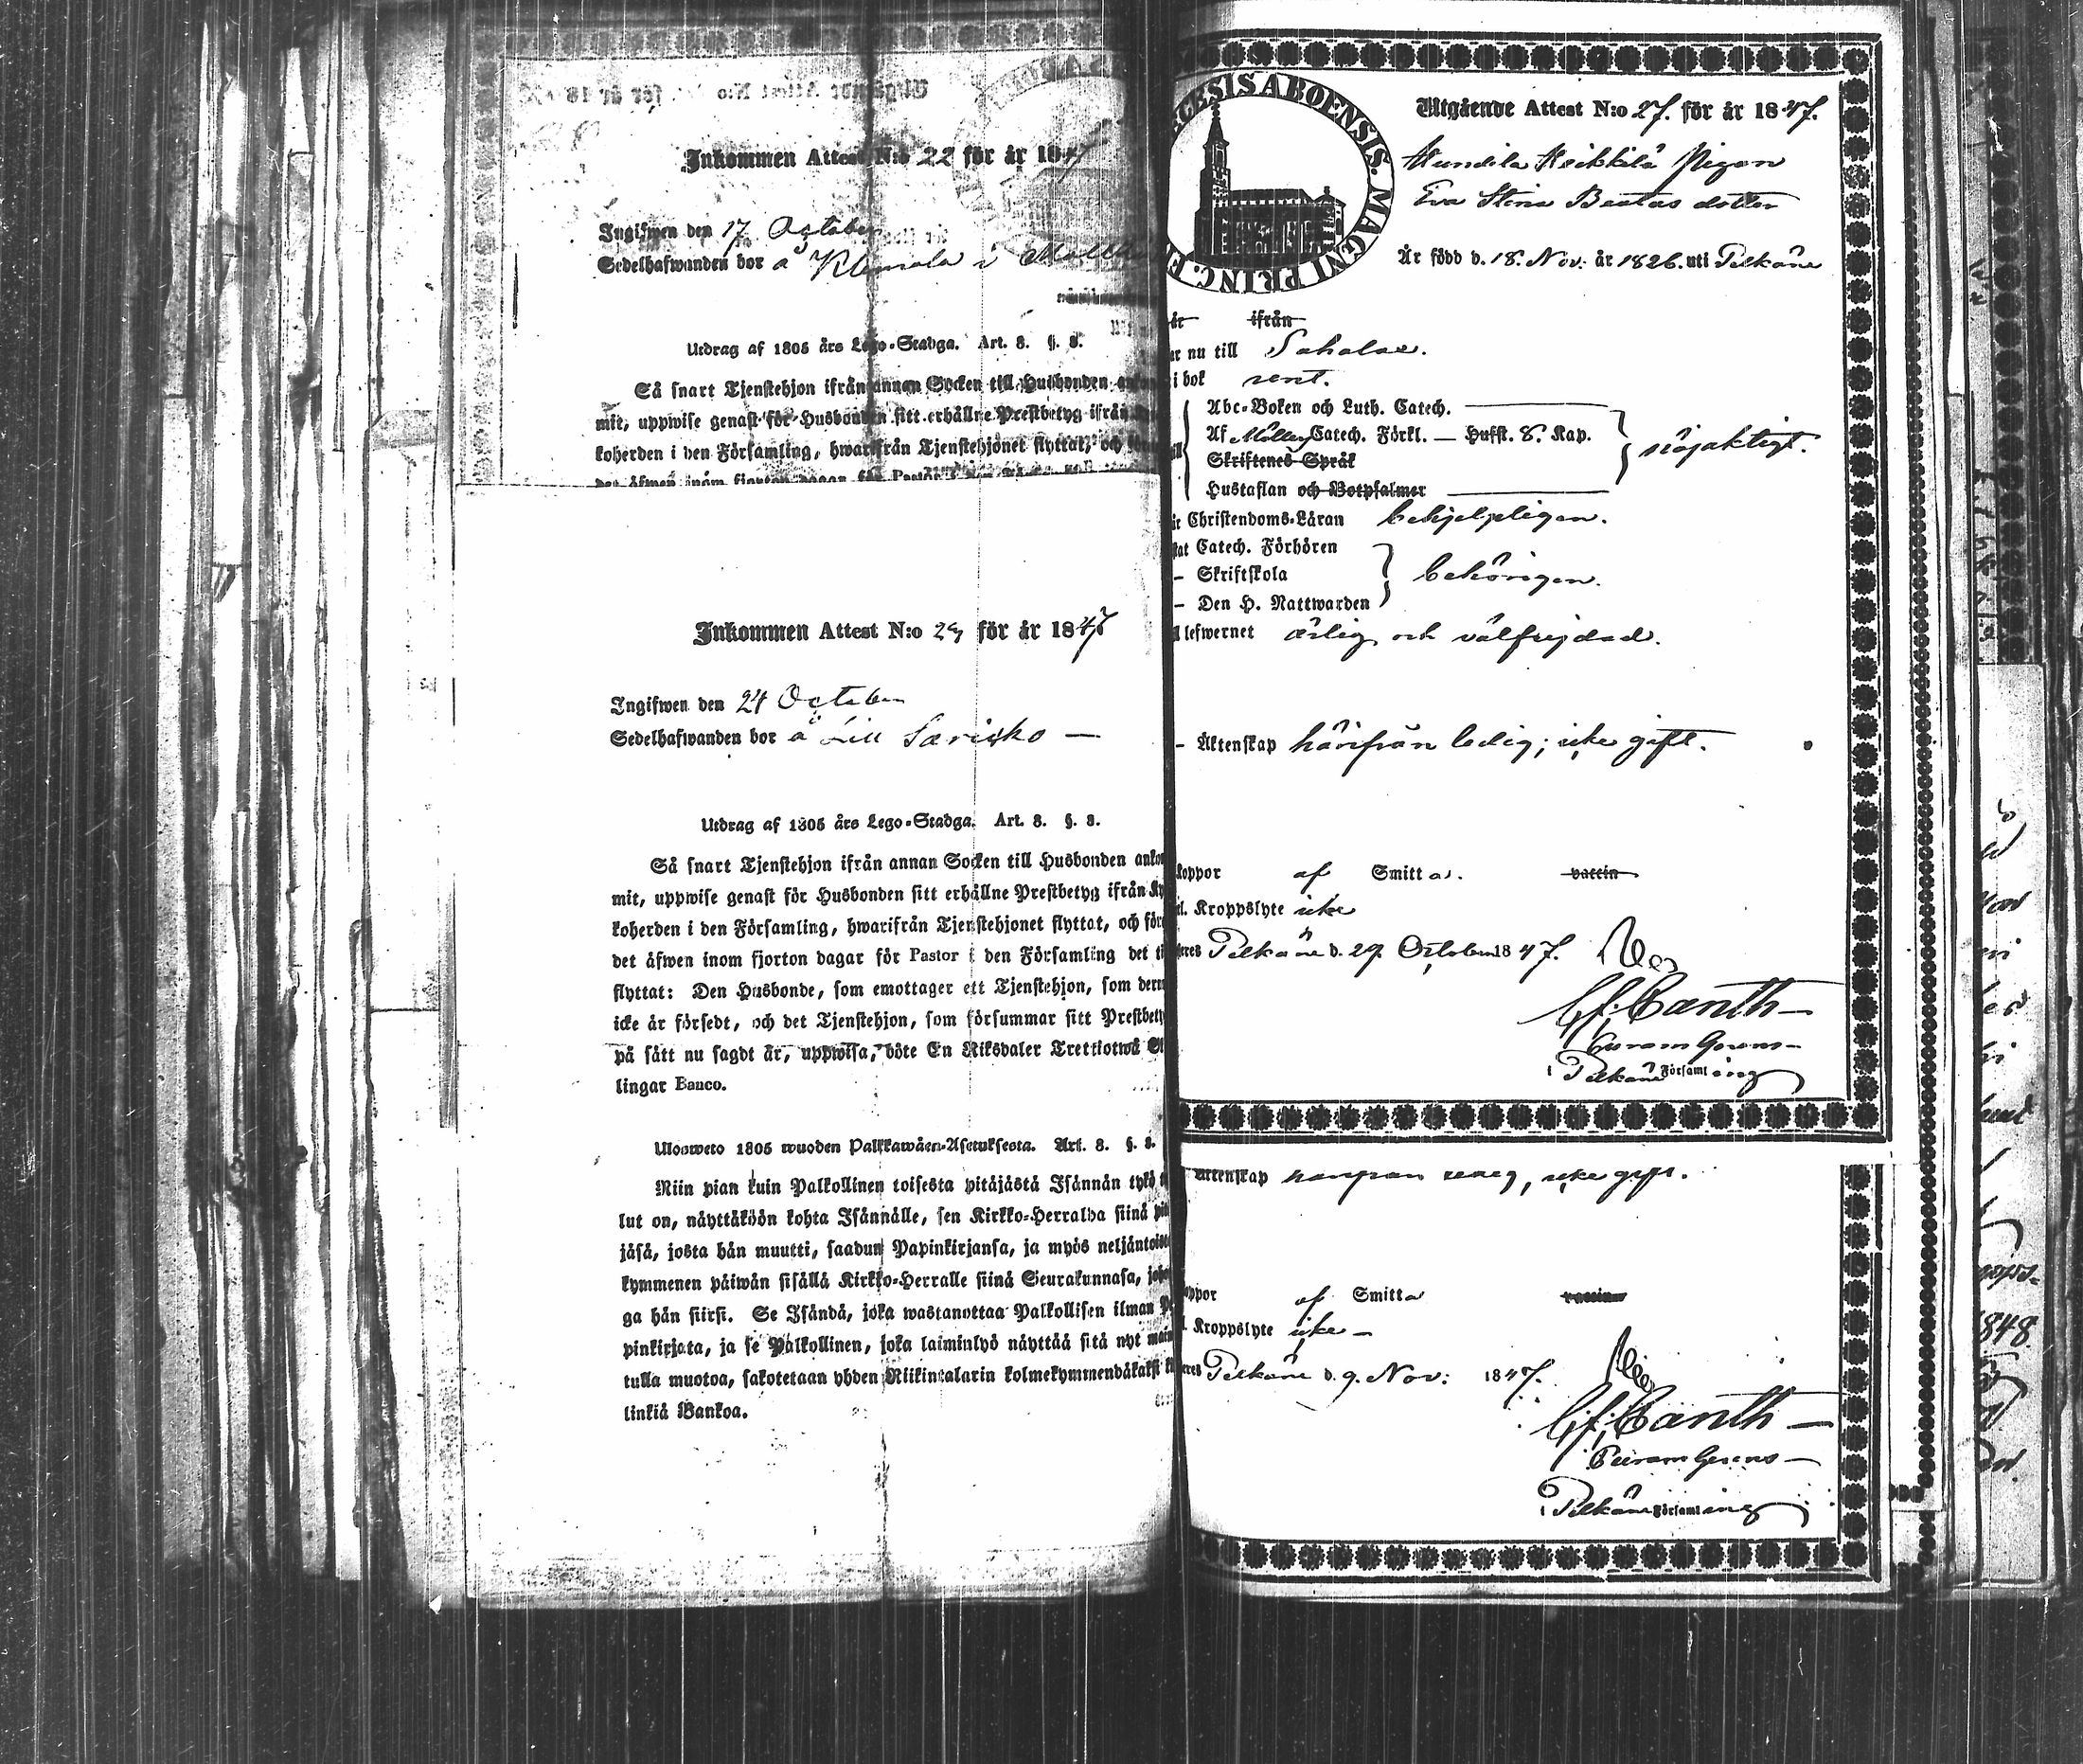 Inkommen Attest N:o 22 för år 1847
Ingifwen den 17 October
Sedelhafwanden bor å Klemola i
Utdrag af 1805 års Lego-Stadga. Art. 8. §. 8.
Så snart Tjenstehjon ifrån annan Socken till Husbonden
mit, uppwise genast för Husbonden sitt erhållne Prestbetyg ifrån
koherden i den Församling, hwarifrån Tjenstehjonet flyttat, och
det åfwen inom fjorton dagar för Pastor
Inkommen Attest N:o för år 1847
Ingifwen den 24 October
Sedelhafwanden bor å Lill Sarisko —
Utdrag af 1805 års Lego-Stadga. Art. 8. §. 8.
Så snart Tjenstehjon ifrån annan Socken till Husbonden anko
mit, uppwise genast för Husbonden sitt erhållne Prestbetyg ifrån Ky
koherden i den Församling, hwarifrån Tjenstehjonet flyttat, och för
det åfwen inom fjorton dagar för Pastor i den Församling det ti
flyttat: Den Husbonde, som emottager ett Tjenstehjon, som derm
icke är försedt, och det Tjenstehjon, som försummar sitt Prestbety
på sått nu sagdt är, uppwisa, böte En Riksdaler Trettiotwå
lingar Banco.
Ulosweto 1805 wuoden Palkkawåen-Asetuksesta. Art. 8. §. 8.
Niin pian kuin Palkollinen toisesta pitåjåstå Isånnån tykö
lut on, nåyttåköön kohta Isånnålle, sen Kirkko-Herralda siinå pi
jåså, josta hån muutti, saadun Papinkirjansa, ja myös neljåntoist
kymmenen påiwån sisållå Kirkko-Herralle siinå Seurakunnasa, jo
ga hån siirsi. Se Isåndå, joka wastanottaa Palkollisen ilman P
pinkirjata, ja se Palkollinen, joka laiminlyö nåyttåå sitå nyt main
tulla muotoa, sakotetaan yhden Riikintalarin kolmekymmendåkaksi
linkiå Bankoa.
ECESIS ABOENSIS. MAGNI PRINC. F
Utgående Attest N:o 27. för år 1847.
Mundila Heikkilä Pigan
Eva Stina Beatas dotter
Är född d. 18. Nov. år 1826. uti Pelkäne
är ifrån
r nu till Sahalax.
i bok rent.
Abc-Boken och Luth. Catech. —
Af Catech. Förkl. — Husst. 8. Kap.
Skriftenes Språk
Hustaflan och Botpsalmer —
nöjaktigt.
Christendoms-Läran behjelpligen.
tat Catech. Förhören
– Skriftskola
– Den H. Nattwarden
behörigen.
lefwernet ärlig och välfrejdad.
– Äktenskap härifrån ledig; icke gift.
koppor af Smitta. vaccin
l. Kroppslyte icke
eres Pelkäne d. 29. October 1847.
Canth —
Pelkäne Församling
Äktenskap härifrån ledig, icke gift.
oppor af Smitta vaccin
l. Kroppslyte icke —
eres Pelkäne d. 9. Nov: 1847.
Canth —
i Pelkäne Församling
1848